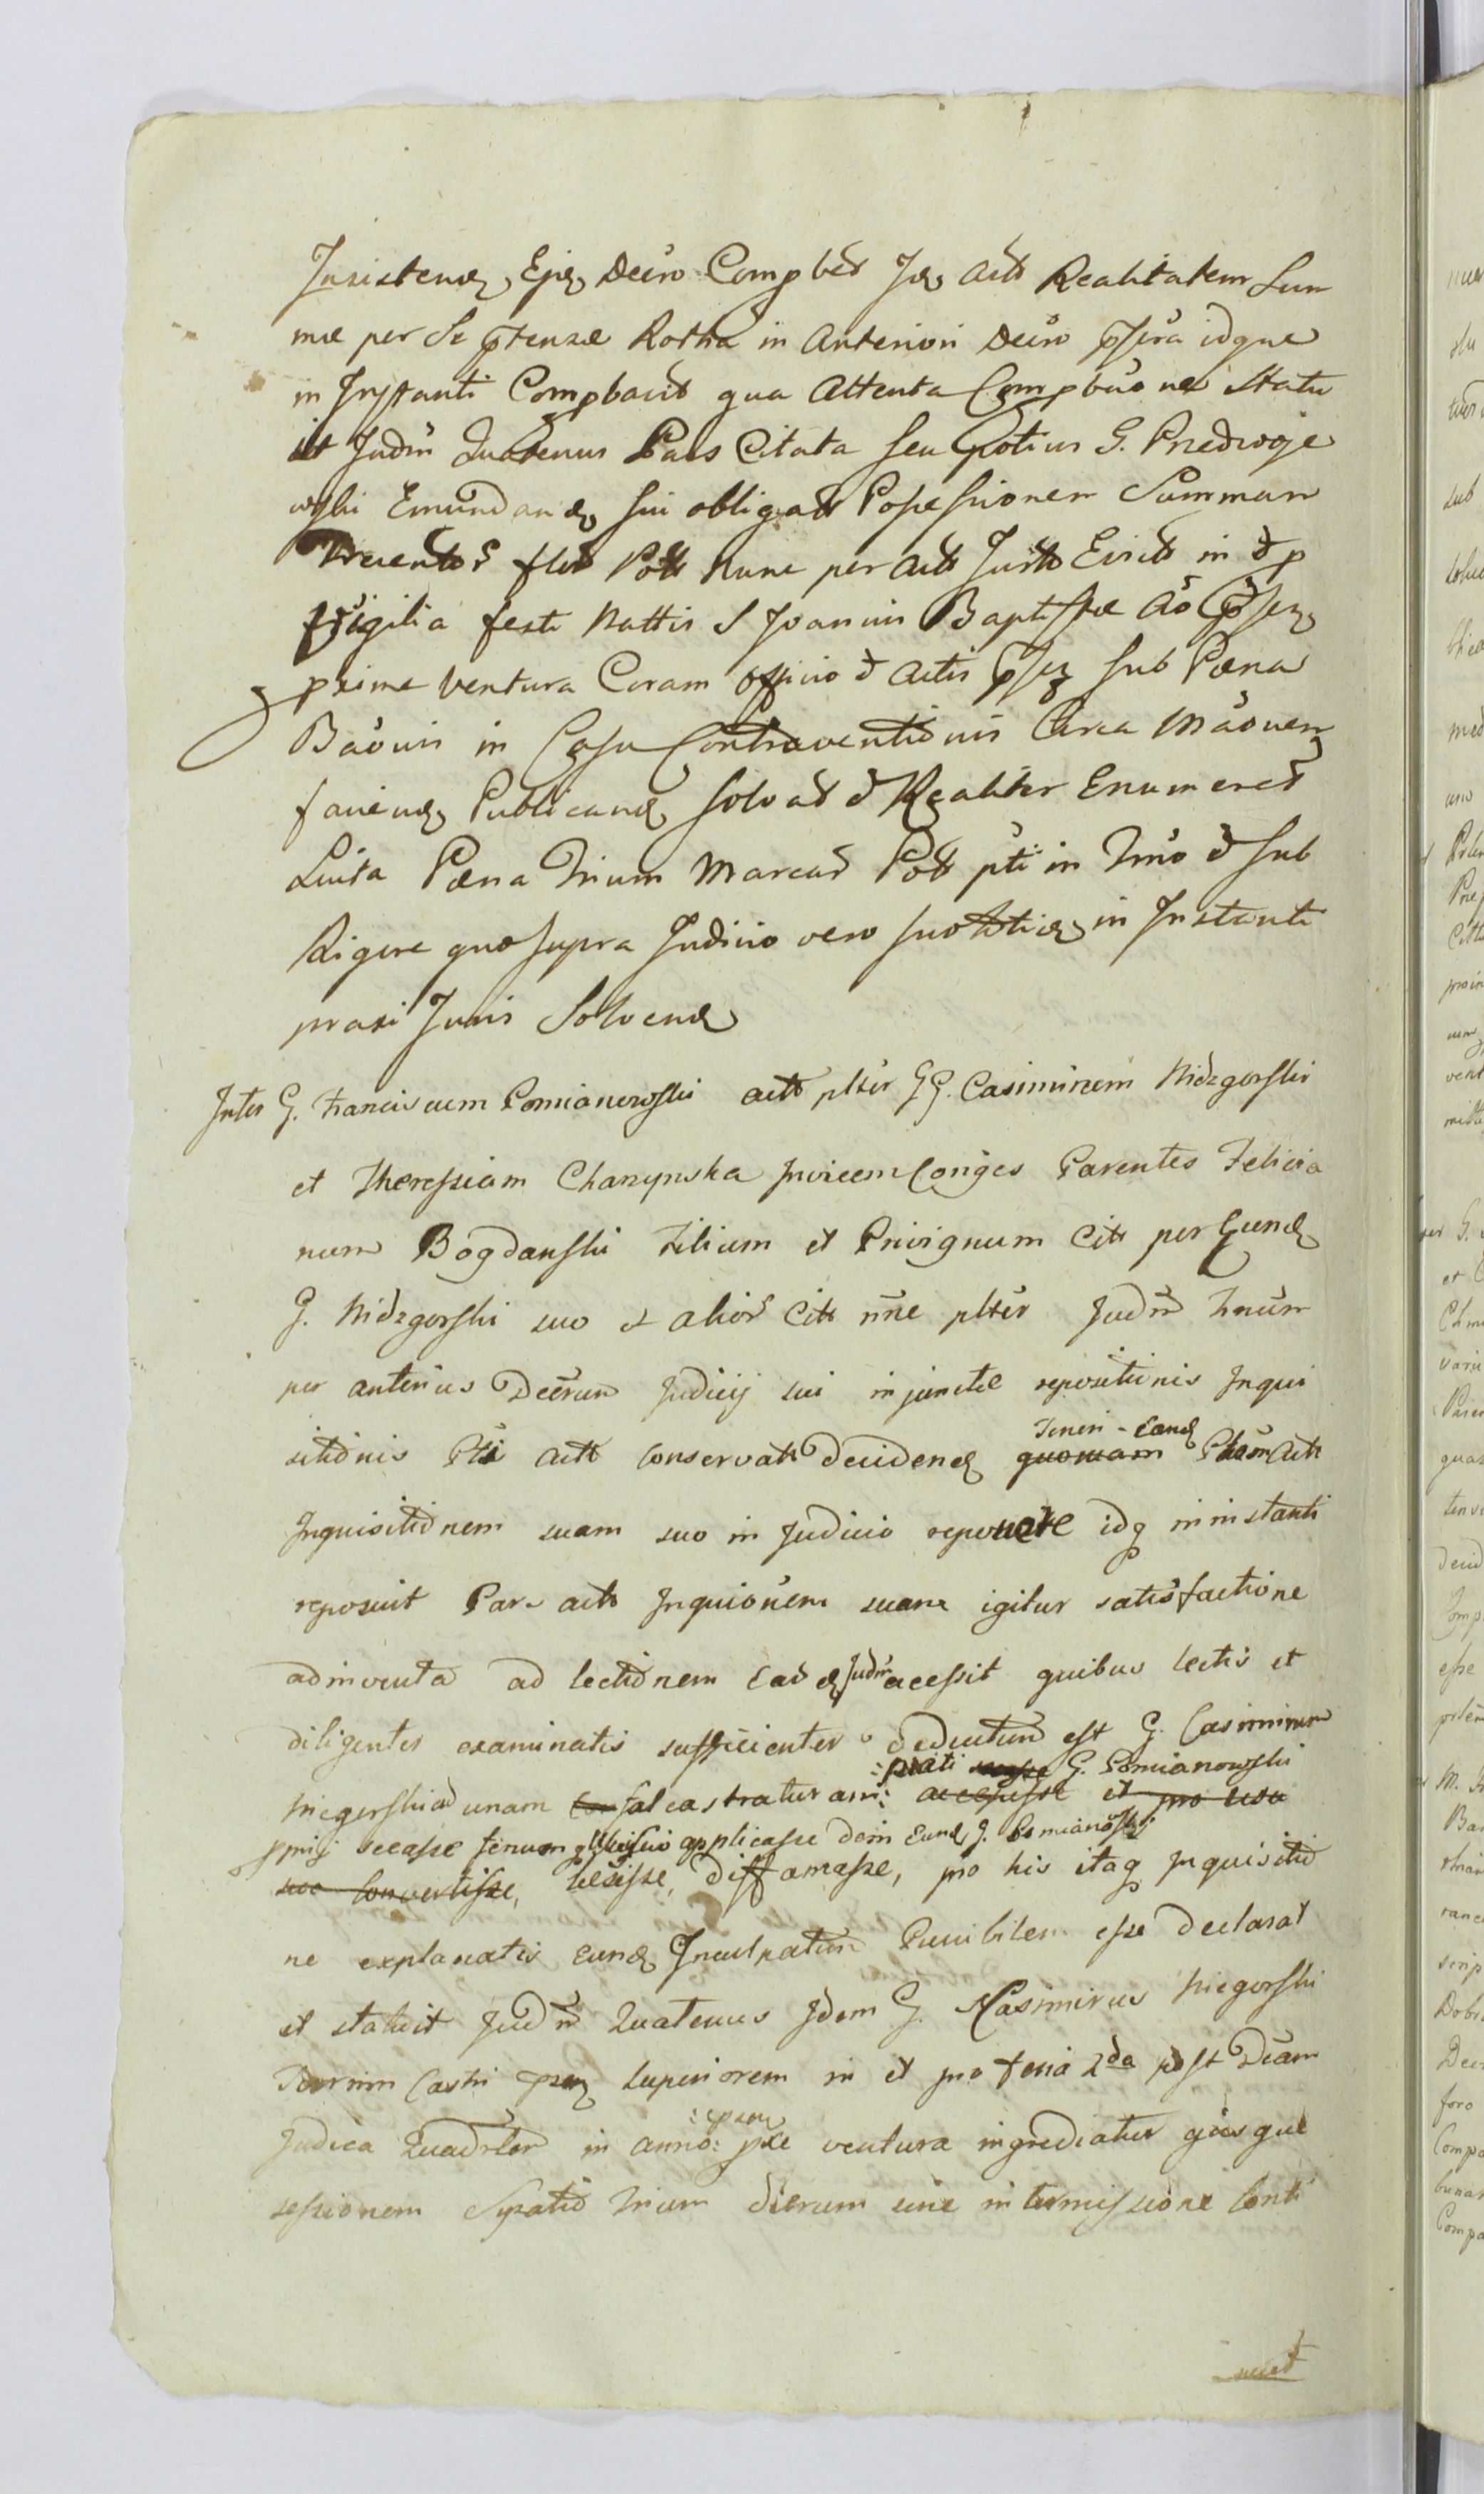 Insistendꝫ Ejꝫ Decro Compbet Idꝫ Acto Realitatem Sum
mæ per Se ptensæ Rotha in Anteriori Decro pssra idque
in Instanti Compbavit qua Attenta Compbuone Statu
it Judm Quatenus Pars Citata seu potius G. Przedwoje
wski Emundandꝫ sui obligat Possessionem Summam
Trecentor flor Poll nunc per Act Jurto Evict in et p
Vigilia festi Nattis S Joannis Baptistæ Ao pssꝫ
prime ventura Coram officio et Actis pssꝫ sub Pæna
Baonis in Casu Contraventionis Circa Maonem
faciendꝫ Publicandꝫ solvat et Realiter Enumeret
Luita Pæna Trium Marcar Poll pti in Tmo et sub
Rigore quo supra Judicio vero in Instanti
praxi Juris Solvendꝫ
Inter G. Franciscum Pomianowski act plter GG. Casimirum Nidzgorski
et Theressiam Charzynska Invicem Conjges Parentes Felicia
num Bogdanski Filium et Privignum Citt per Eundꝫ
G. Nidzgorski suo et alior Citt nne plter Judm Tnum
per anterius Decrum Judicij sui injunctæ repositionis Inqui
sitionis Pti Act conservatt Decidendꝫ quoniam Teneri - Eandꝫ Actt
Inquisitionem suam suo in Judicio reponere idꝫ in instanti
reposuit Pars act Inquionem suam igitur satisfactione
adinventa ad lectionem Eadꝫ Judm acessit quibus lectis et
diligenter examinatis sufficienter deductum est G. Casimirum
Niegorski ad unam falcastraturam: :prati G. Pomianowski accepisse et pro usu
secasse fenum suo applicasse dein Eundꝫ G. Pomianoski
suo convertisse, lesisse, Diffamasse, pro his itaꝗ Inquisitio
ne explanatis eundꝫ Inculpatum Punibilem esse declarat
et statuit Judm Quatenus Idem G. Kasimirus Niegorski
Turrim Castri psenꝫ superiorem in et pro feria 2da post Dcam
Judica Quadrler in anno: :epsenꝫ pxe ventura ingrediatur ejusque
sessionem Spatio Trium dierum sine intermissione Conti
nuet